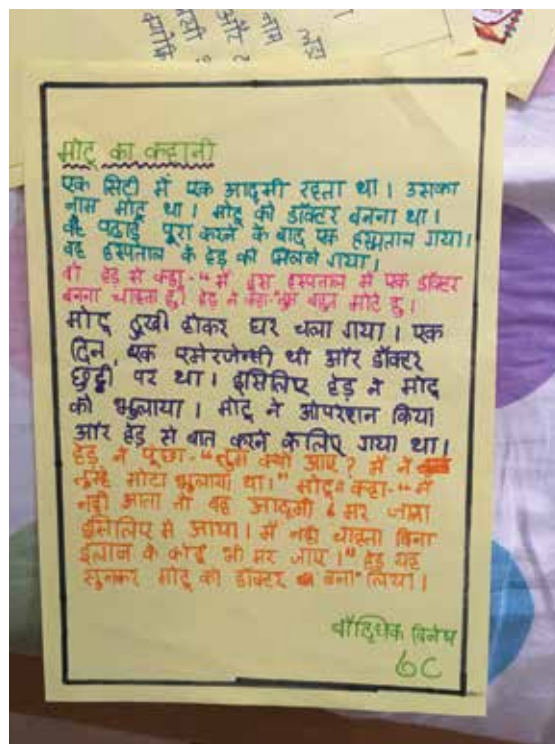 और
नाम
मोटू का कहानी
एक सिटी में एक आदमी रहता था। उसका
नाम मोटू था। मोटू को डॉक्टर बनना था।
वह पढाई पूरा करने के बाद एक हस्पताल गया।
वह हस्पताल के हेड़ को मिलने गया।
वो हेड़ से कहा-"मैं इस हस्पताल में एक डॉक्टर
बनना चाहता हूँ। हेड़ ने कहा-"तुम बहुत मोटे हु।
मोटू दुखी होकर घर चला गया। एक
दिन, एक एमेरजेन्सी थी और डॉक्टर
छुट्टी पर था। इसिलिए हेड़ ने मोटू
को भुलाया। मोटू ने ओपरेशन किया
और हेड़ से बात करने केलिए गया था।
हेड़ ने पूछा-"तुम क्यों आए? मैं ने
तुम्हे मोटा भुलाया था।" मोटू कहा-"मैं
नही आता तो वह आदमी मर जाता
इसिलिए मैं आया। मैं नही चाहता बिना
ईलाज के कोई भी मर जाए।" हेड़ यह
सुनकर मोटू को डॉक्टर बना लिया।
विनेष
6C